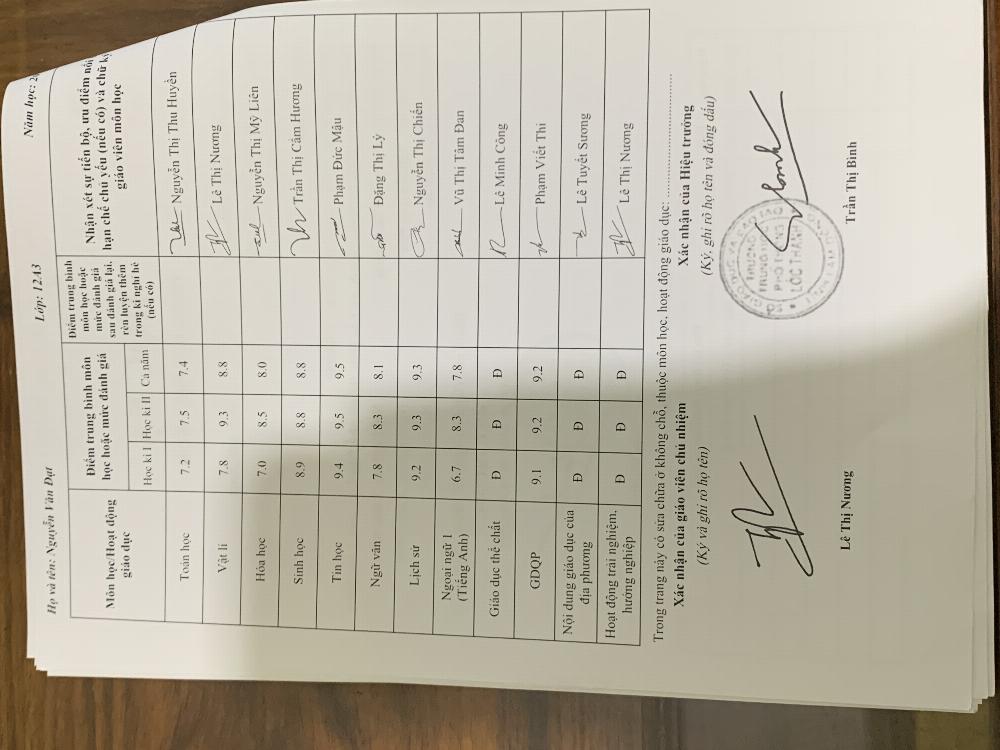 Họ và tên: Nguyễn Văn Đạt Lớp: 12A3 Năm học:
Môn học/Hoạt động
giáo dục
Điểm trung bình môn
học hoặc mức đánh giá
Học kì I Học kì II Cả năm
Điểm trung bình
môn học hoặc
mức đánh giá
sau đánh giá lại,
rèn luyện thêm
trong kì nghỉ hè
(nếu có)
Nhận xét sự tiến bộ, ưu điểm nổi
hạn chế chủ yếu (nếu có) và chữ ký
giáo viên môn học
Toán học 7.2 7.5 7.4 Nguyễn Thị Thu Huyền
Vật lí 7.8 9.3 8.8 Lê Thị Nương
Hóa học 7.0 8.5 8.0 Nguyễn Thị Mỹ Liên
Sinh học 8.9 8.8 8.8 Trần Thị Cẩm Hương
Tin học 9.4 9.5 9.5 Phạm Đức Mậu
Ngữ văn 7.8 8.3 8.1 Đặng Thị Lý
Lịch sử 9.2 9.3 9.3 Nguyễn Thị Chiến
Ngoại ngữ 1
(Tiếng Anh) 6.7 8.3 7.8 Vũ Thị Tâm Đan
Giáo dục thể chất Đ Đ Đ Lê Minh Công
GDQP 9.1 9.2 9.2 Phạm Viết Thi
Nội dung giáo dục của
địa phương Đ Đ Đ Lê Tuyết Sương
Hoạt động trải nghiệm,
hướng nghiệp Đ Đ Đ Lê Thị Nương
Trong trang này có sửa chữa ở không chỗ, thuộc môn học, hoạt động giáo dục: ........................
Xác nhận của giáo viên chủ nhiệm
(Ký và ghi rõ họ tên)
Lê Thị Nương
Xác nhận của Hiệu trưởng
(Ký, ghi rõ họ tên và đóng dấu)
TRƯỜNG
TRUNG HỌC
PHỔ THÔNG
LỘC THÀNH
Trần Thị Bình